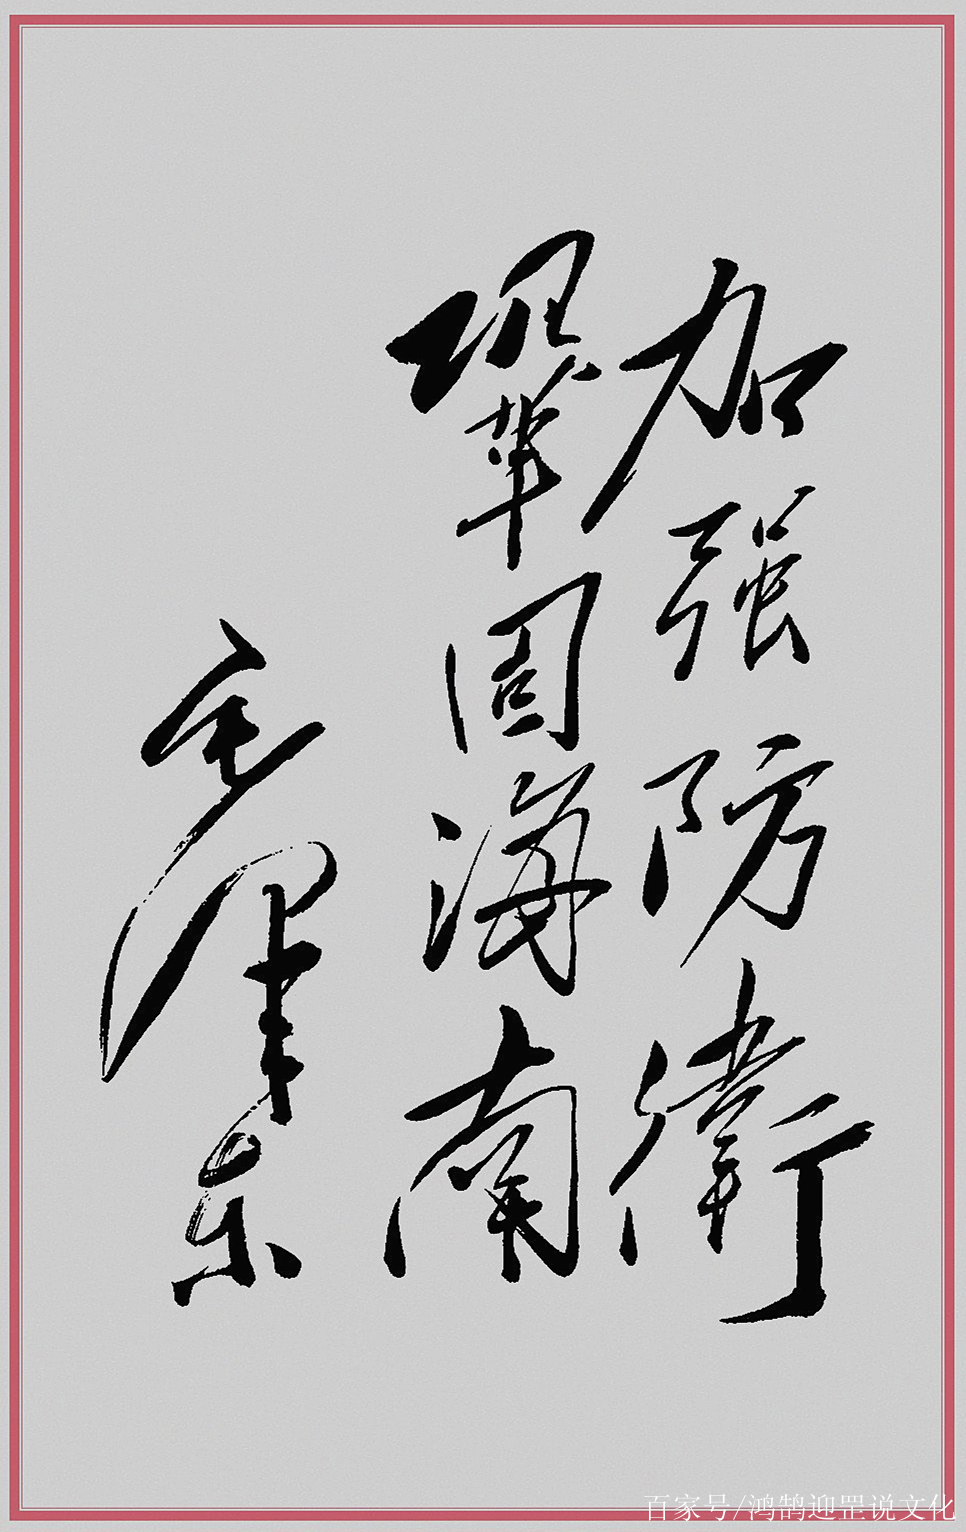 加强防衛
巩固海南
毛泽东
百家号/鸿鹄迎罡说文化